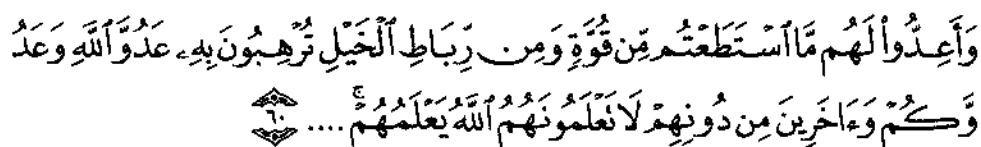 وَأَعِدُّوا۟ لَهُم مَّا ٱسْتَطَعْتُم مِّن قُوَّةٍ وَمِن رِّبَاطِ ٱلْخَيْلِ تُرْهِبُونَ بِهِۦ عَدُوَّ ٱللَّهِ وَعَدُ
وَّكُمْ وَءَاخَرِينَ مِن دُونِهِمْ لَا تَعْلَمُونَهُمُ ٱللَّهُ يَعْلَمُهُمْ ۚ .... ٦٠